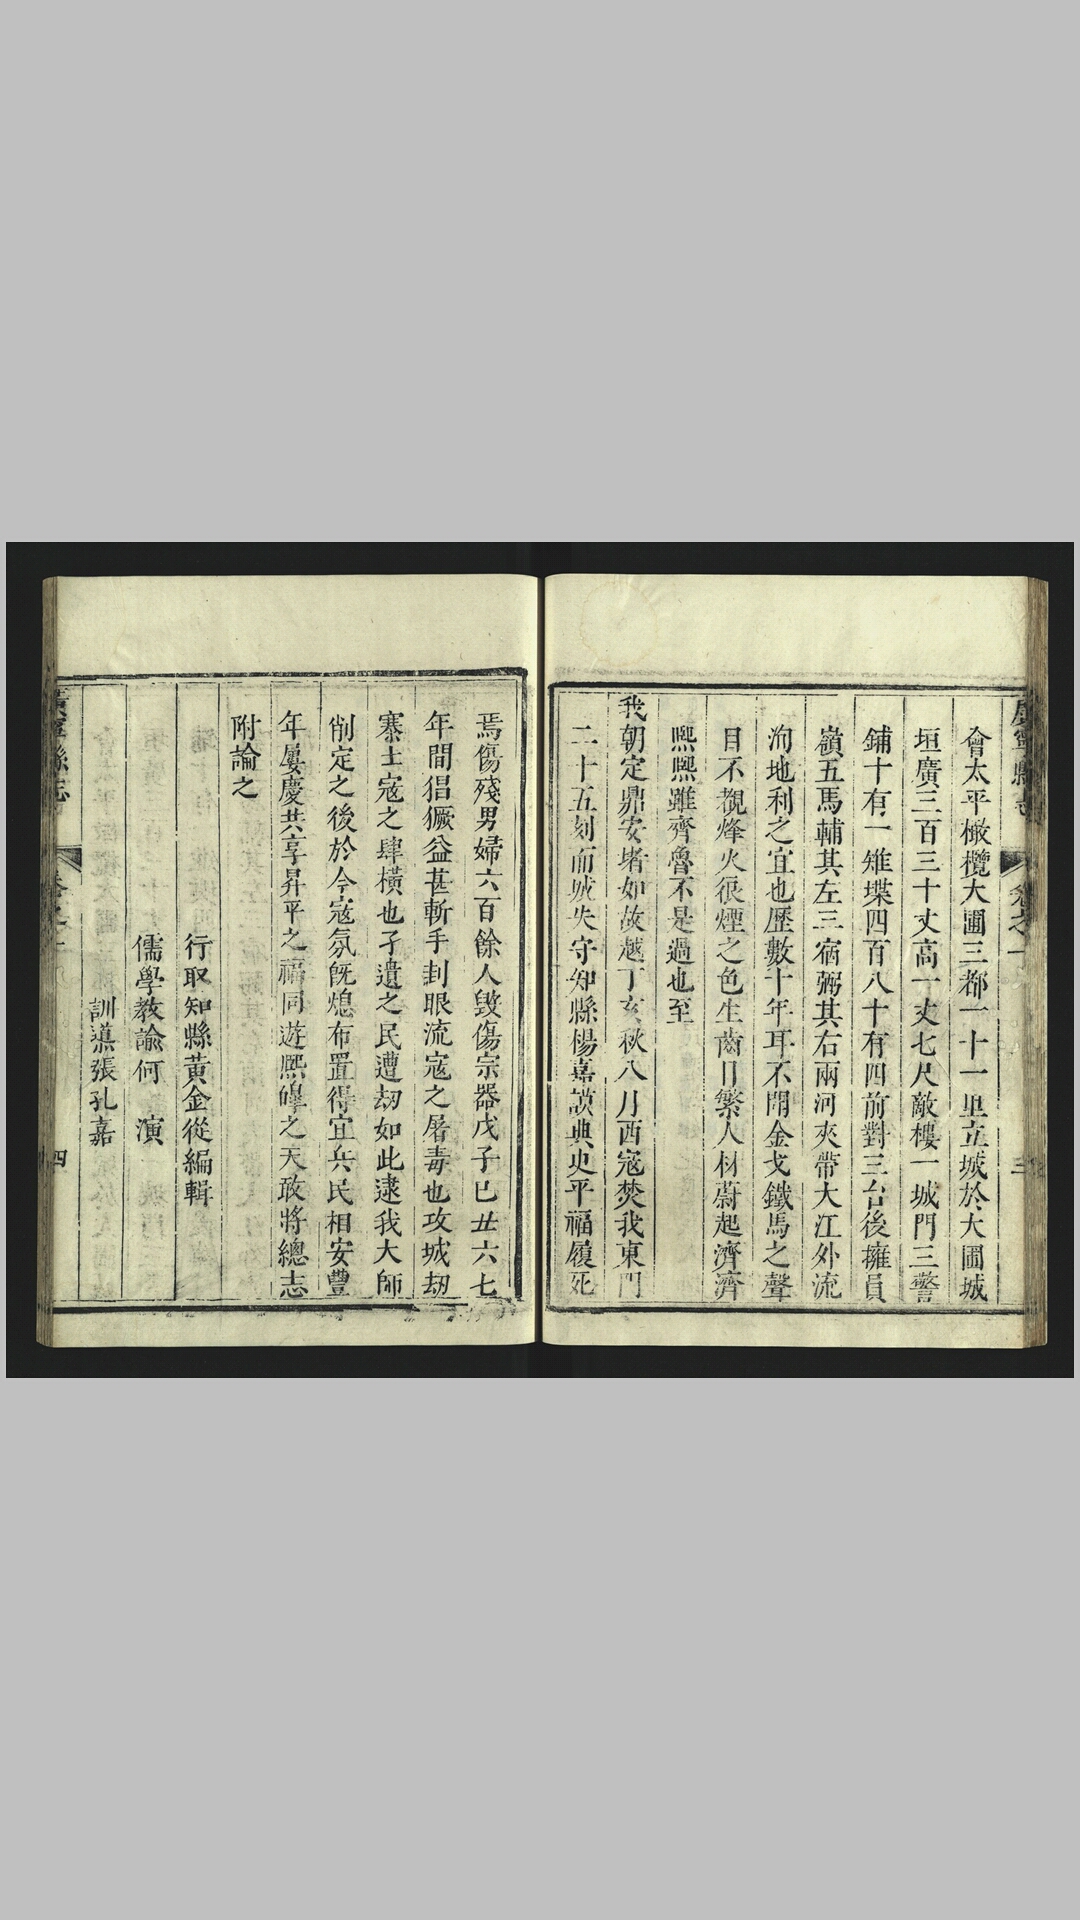 廣寧縣志 卷之一 三
會太平橄欖大圃三都一十一里立城於大圃城
垣廣三百三十丈高一丈七尺敵樓一城門三警
鋪十有一雉堞四百八十有四前對三台後擁員
嶺五馬輔其左三宿弼其右兩河夾帶大江外流
洵地利之宜也歷數十年耳不聞金戈鐵馬之聲
目不覩烽火狼煙之色生齒日繁人材蔚起濟濟
熙熙雖齊魯不是過也至
我朝定鼎安堵如故越丁亥秋八月西寇焚我東門
二十五刻而城失守知縣楊嘉謨典史平福履死
焉傷殘男婦六百餘人毀傷宗器戊子己丑六七
年間猖獗益甚斬手刲眼流寇之屠毒也攻城刼
寨土寇之肆橫也孑遺之民遭刼如此逮我大師
削定之後於今寇氛旣熄布置得宜兵民相安豐
年屢慶共享昇平之福同遊熙皞之天敢將總志
附論之
行取知縣黃金從編輯
儒學教諭何 演
訓導張孔嘉
廣寧縣志 卷之一 四